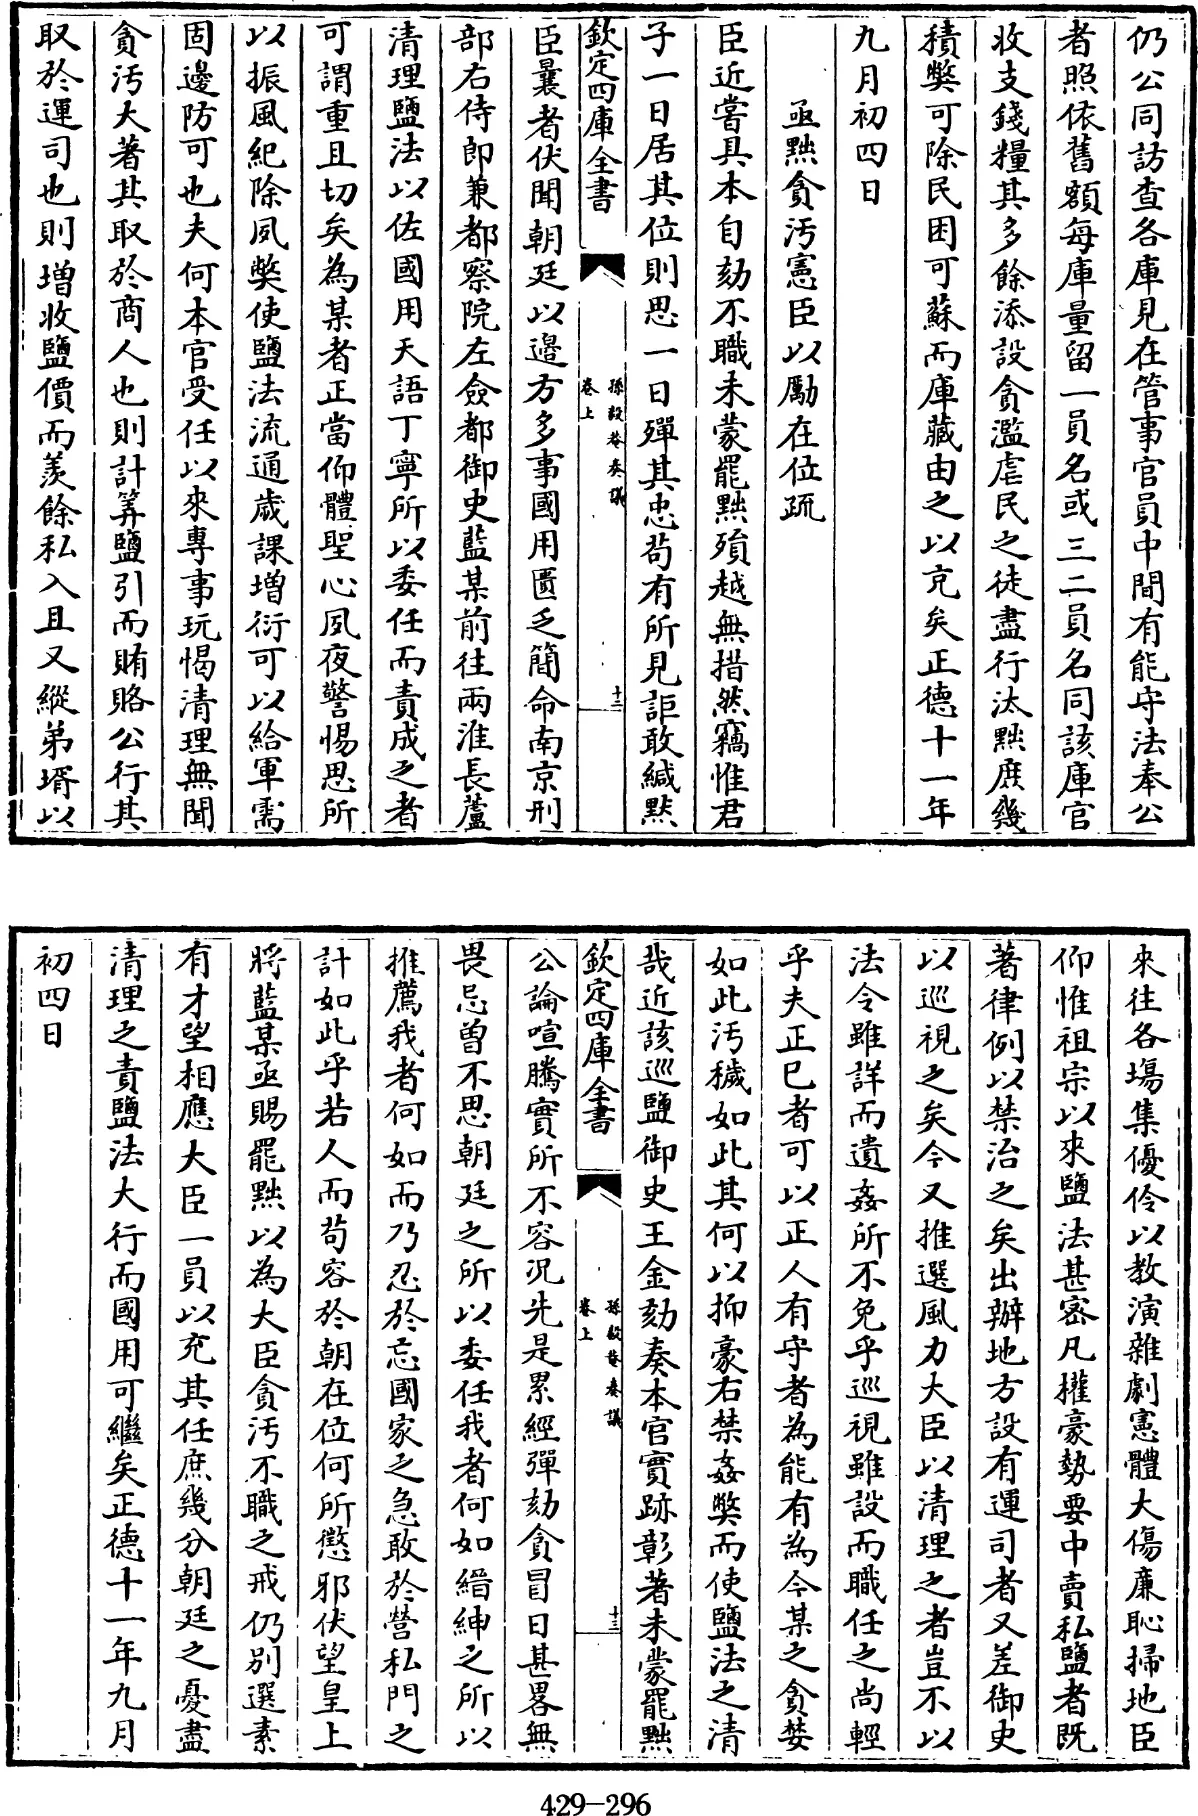 仍公同訪查各庫見在管事官員中間有能守法奉公
者照依舊額每庫量留一員名或三二員名同該庫官
收支錢糧其多餘添設貪濫虐民之徒盡行汰黜庶幾
積獘可除民困可蘇而庫藏由之以充矣正德十一年
九月初四日
亟黜貪汚憲臣以勵在位疏
臣近嘗具本自劾不職未蒙罷黜殞越無措然竊惟君
子一日居其位則思一日殫其忠茍有所見詎敢緘黙
欽定四庫全書
孫毅菴奏議
卷上
十二
臣曩者伏聞朝廷以邉方多事國用匱乏簡命南京刑
部右侍郎兼都察院左僉都御史藍某前往兩淮長蘆
清理鹽法以佐國用天語丁寧所以委任而責成之者
可謂重且切矣為某者正當仰體聖心夙夜警惕思所
以振風紀除夙獘使鹽法流通歲課増衍可以給軍需
固邊防可也夫何本官受任以來專事玩愒清理無聞
貪汚大著其取於商人也則計筭鹽引而賄賂公行其
取於運司也則増收鹽價而羨餘私入且又縱弟壻以
來往各塲集優伶以教演雜劇憲體大傷廉恥掃地臣
仰惟祖宗以來鹽法甚宻凡權豪勢要中賣私鹽者既
著律例以禁治之矣出辦地方設有運司者又差御史
以巡視之矣今又推選風力大臣以清理之者豈不以
法令雖詳而遺姦所不免乎巡視雖設而職任之尚輕
乎夫正已者可以正人有守者為能有為今某之貪婪
如此汚穢如此其何以抑豪右禁姦獘而使鹽法之清
哉近該巡鹽御史王金劾奏本官實跡彰著未蒙罷黜
欽定四庫全書
孫毅菴奏議
卷上
十三
公論喧騰實所不容况先是累經彈劾貪冒日甚畧無
畏忌曽不思朝廷之所以委任我者何如縉紳之所以
推薦我者何如而乃忍於忘國家之急敢於營私門之
計如此乎若人而茍容於朝在位何所懲邪伏望皇上
將藍某亟賜罷黜以為大臣貪汚不職之戒仍别選素
有才望相應大臣一員以充其任庶幾分朝廷之憂盡
清理之責鹽法大行而國用可繼矣正德十一年九月
初四日
429-296